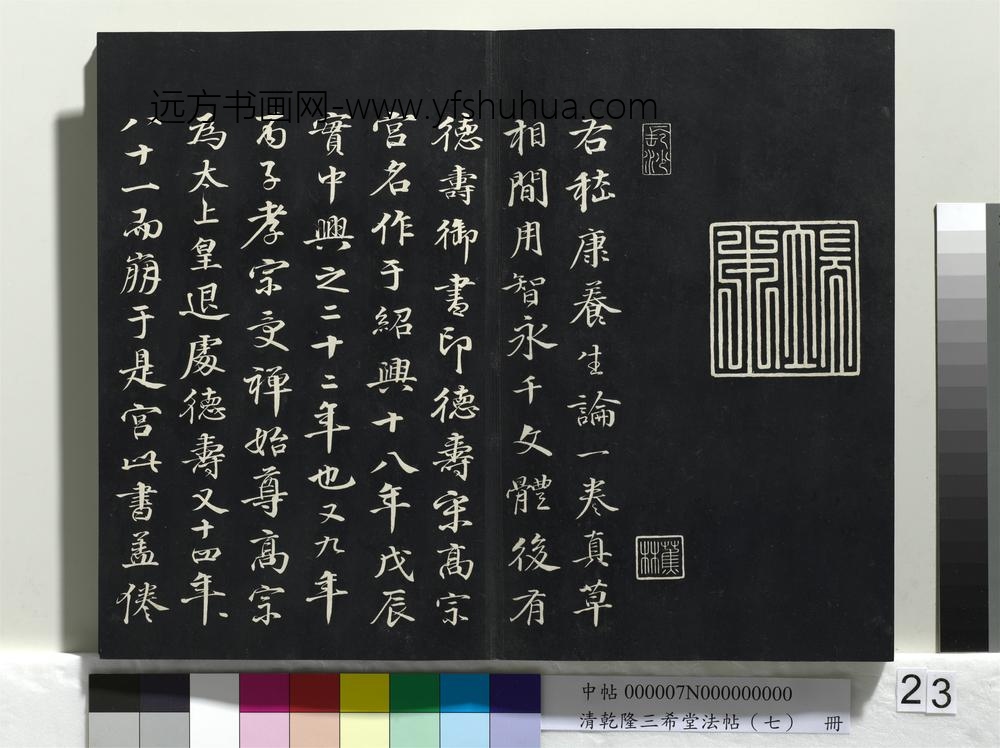 远方书画网-www.yfshuhua.com
長沙
蕉林
右嵇康養生論一卷真草
相間用智永千文體後有
德壽御書印德壽宋高宗
宫名作于紹興十八年戊辰
實中興之二十二年也又九年
丙子孝宗受禅始尊高宗
為太上皇退處德壽又十四年
八十一而崩于是宫此書盖倦
中帖 000007N000000000
清乾隆三希堂法帖（七） 冊
23